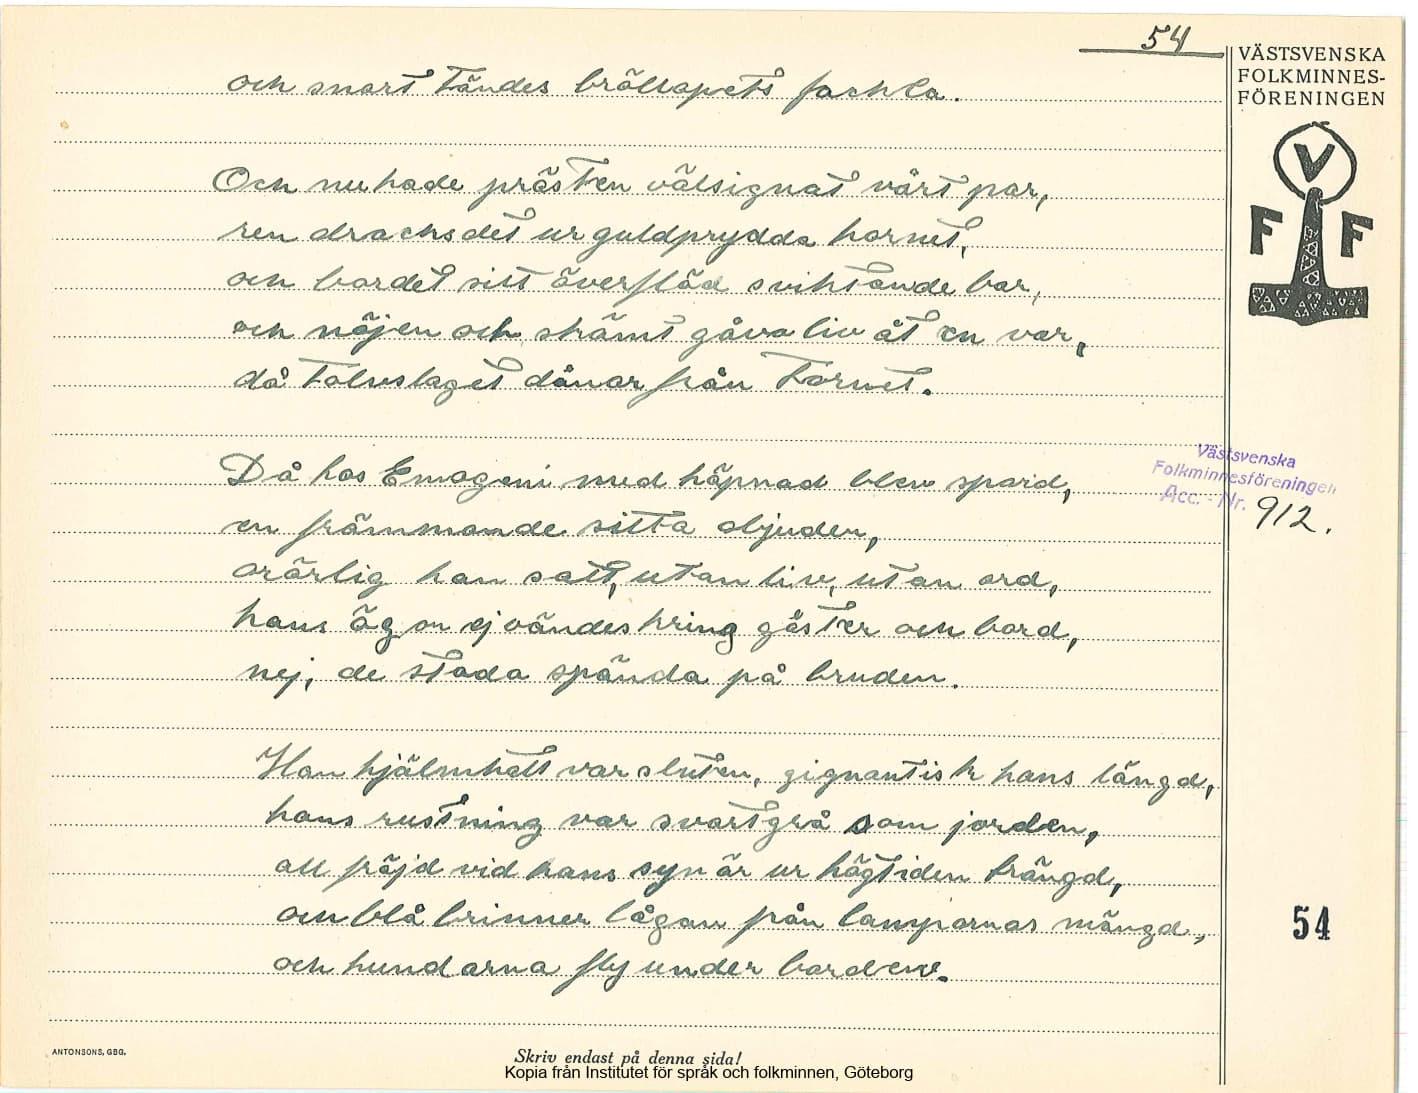 54
VÄSTSVENSKA
FOLKMINNES-
FÖRENINGEN
V
F F
och snart tändes bröllopets fackla.
Och nu hade prästen välsignat vårt par,
ren dracks det ur guldprydda hornet,
och bordet sitt överflöd sviktande bar,
och nöjen och skämt gåvo liv åt en var,
då tolvslaget dånar från tornet.
Då hos Emogeni med häpnad blev spord,
en främmande sitta objuden,
orörlig han satt, utan liv, utan ord,
hans ögon ej vändes kring gäster och bord,
nej, de stodo spända på bruden.
Västsvenska
Folkminnesföreningen
Acc. - Nr. 912.
Han hjälmhatt var sluten, gignantisk hans längd,
hans rustning var svartgrå som jorden,
all fröjd vid hans syn är ur högtiden trängd,
och blå brinner lågan från lampornas mängd,
och hundarna fly under borden.
54
ANTONSONS, GBG.
Skriv endast på denna sida!
Kopia från Institutet för språk och folkminnen, Göteborg